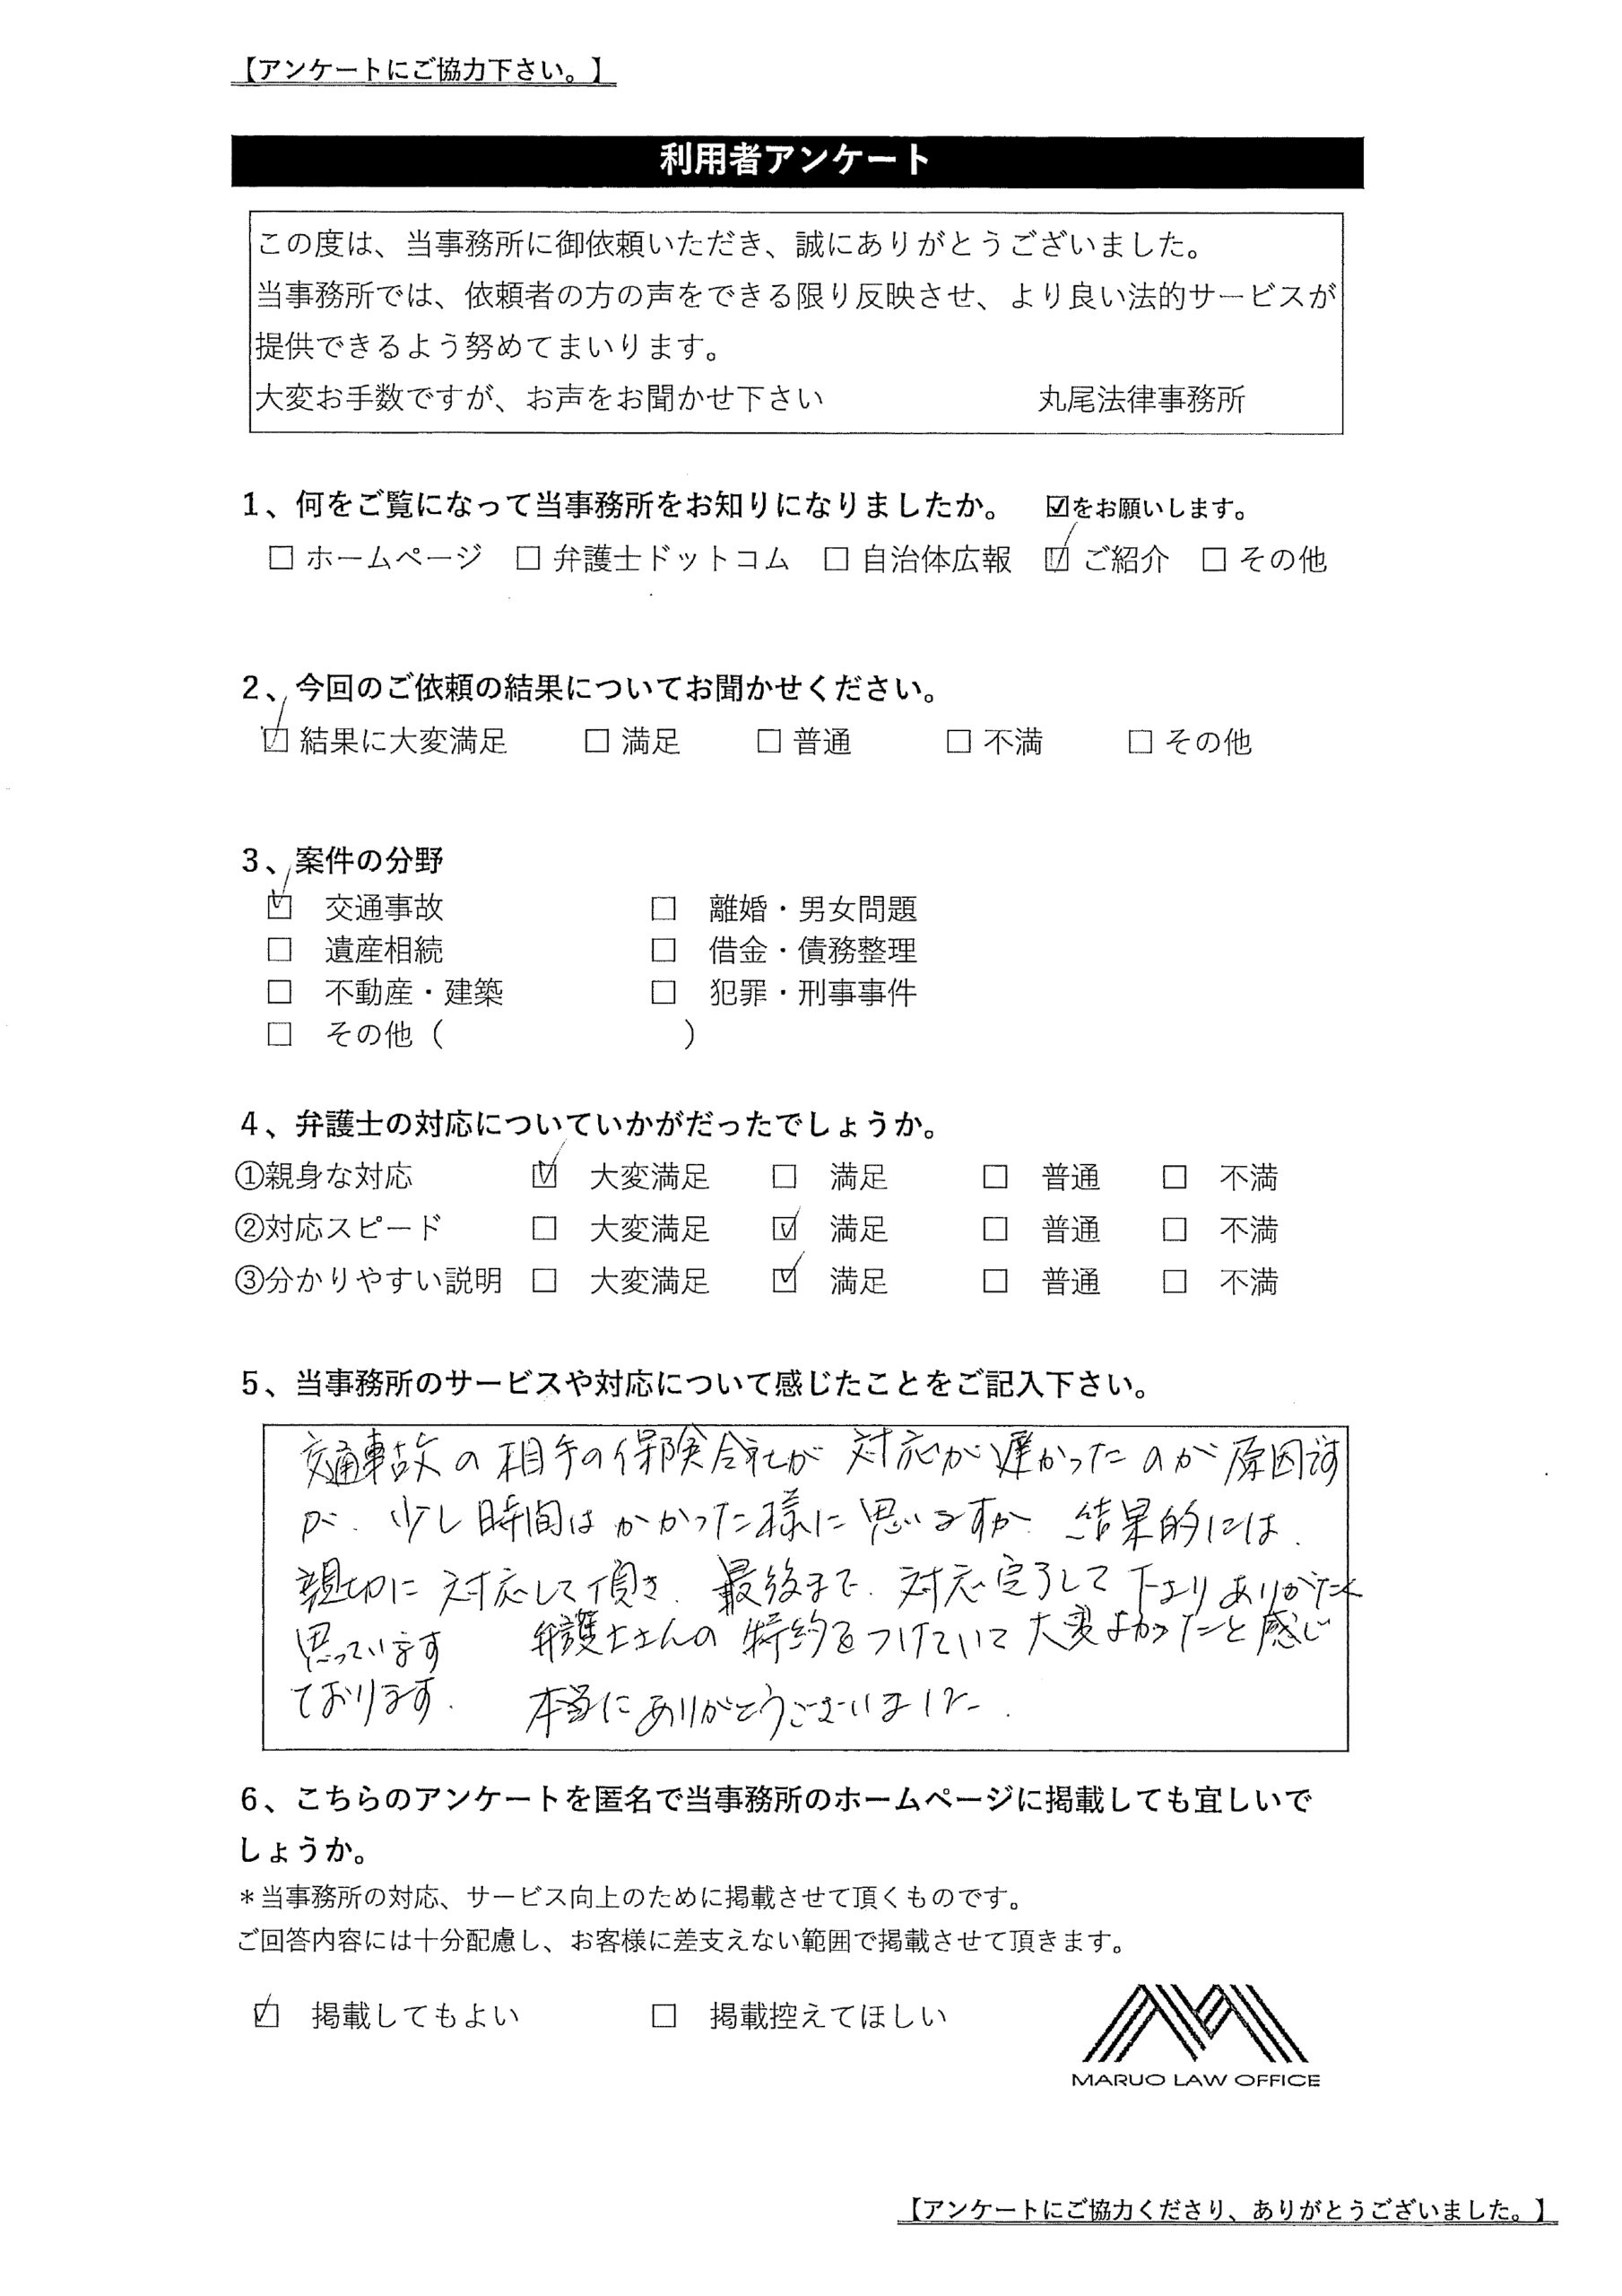 【アンケートにご協力下さい。】
利用者アンケート
この度は、当事務所に御依頼いただき、誠にありがとうございました。
当事務所では、依頼者の方の声をできる限り反映させ、より良い法的サービスが
提供できるよう努めてまいります。
大変お手数ですが、お声をお聞かせ下さい 丸尾法律事務所
1、何をご覧になって当事務所をお知りになりましたか。 ☑をお願いします。
☐ ホームページ ☐ 弁護士ドットコム ☐ 自治体広報 ☑ ご紹介 ☐ その他
2、今回のご依頼の結果についてお聞かせください。
☑ 結果に大変満足 ☐ 満足 ☐ 普通 ☐ 不満 ☐ その他
3、案件の分野
☑ 交通事故 ☐ 離婚・男女問題
☐ 遺産相続 ☐ 借金・債務整理
☐ 不動産・建築 ☐ 犯罪・刑事事件
☐ その他（ ）
4、弁護士の対応についていかがだったでしょうか。
①親身な対応 ☑ 大変満足 ☐ 満足 ☐ 普通 ☐ 不満
②対応スピード ☐ 大変満足 ☑ 満足 ☐ 普通 ☐ 不満
③分かりやすい説明 ☐ 大変満足 ☑ 満足 ☐ 普通 ☐ 不満
5、当事務所のサービスや対応について感じたことをご記入下さい。
交通事故の相手の保険会社が対応が遅かったのが原因です
が、少し時間はかかった様に思いますが、結果的には、
親切に対応して頂き、最後まで、対応完了して下さりありがたく
思っています 弁護士さんの特約をつけていて大変よかったと感じ
ております。 本当にありがとうございました。
6、こちらのアンケートを匿名で当事務所のホームページに掲載しても宜しいで
しょうか。
＊当事務所の対応、サービス向上のために掲載させて頂くものです。
ご回答内容には十分配慮し、お客様に差支えない範囲で掲載させて頂きます。
☑ 掲載してもよい ☐ 掲載控えてほしい
MARUO LAW OFFICE
【アンケートにご協力くださり、ありがとうございました。】